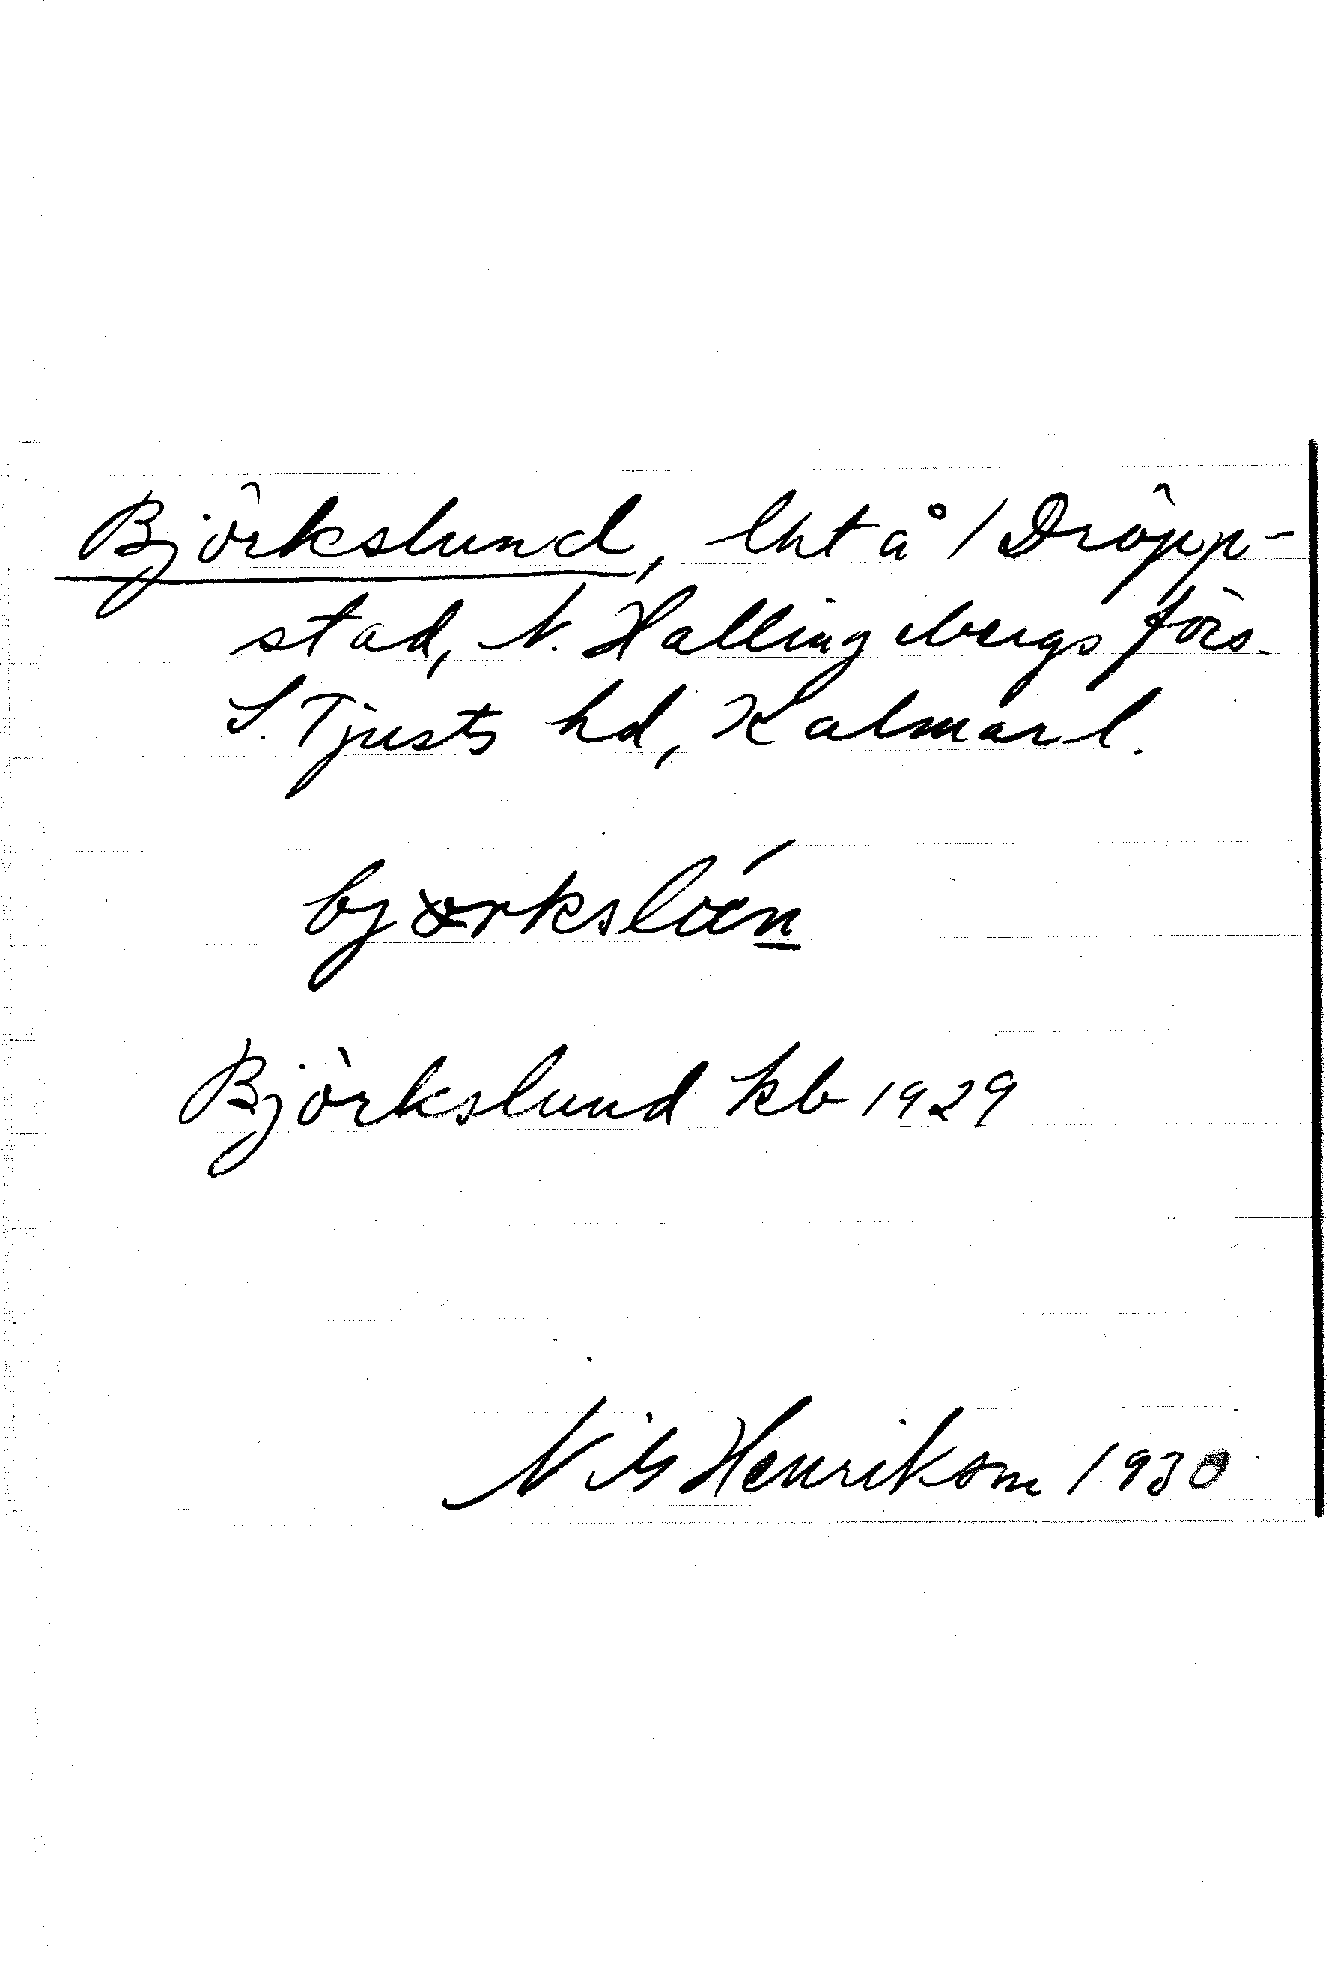 Björkslund, lht å 1 Dröpp-
stad, N. Hallingebergs förs.
S. Tjusts hd, Kalmar l.
Björkslund kb 1929
Nils Henrikson 1930